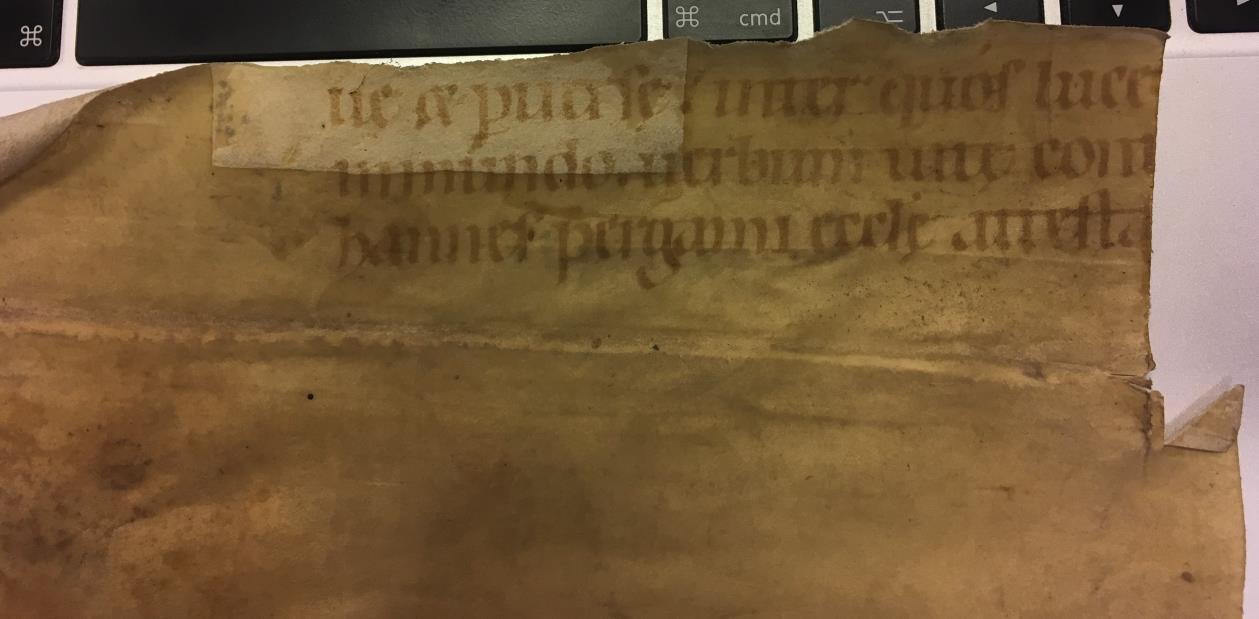 ⌘ ⌘ cmd ⌥ ◄ ▼
uę & ꝑuersę: inter quos luce
in mundo. uerbum uitę cont
hannes pergami ecclę attesta